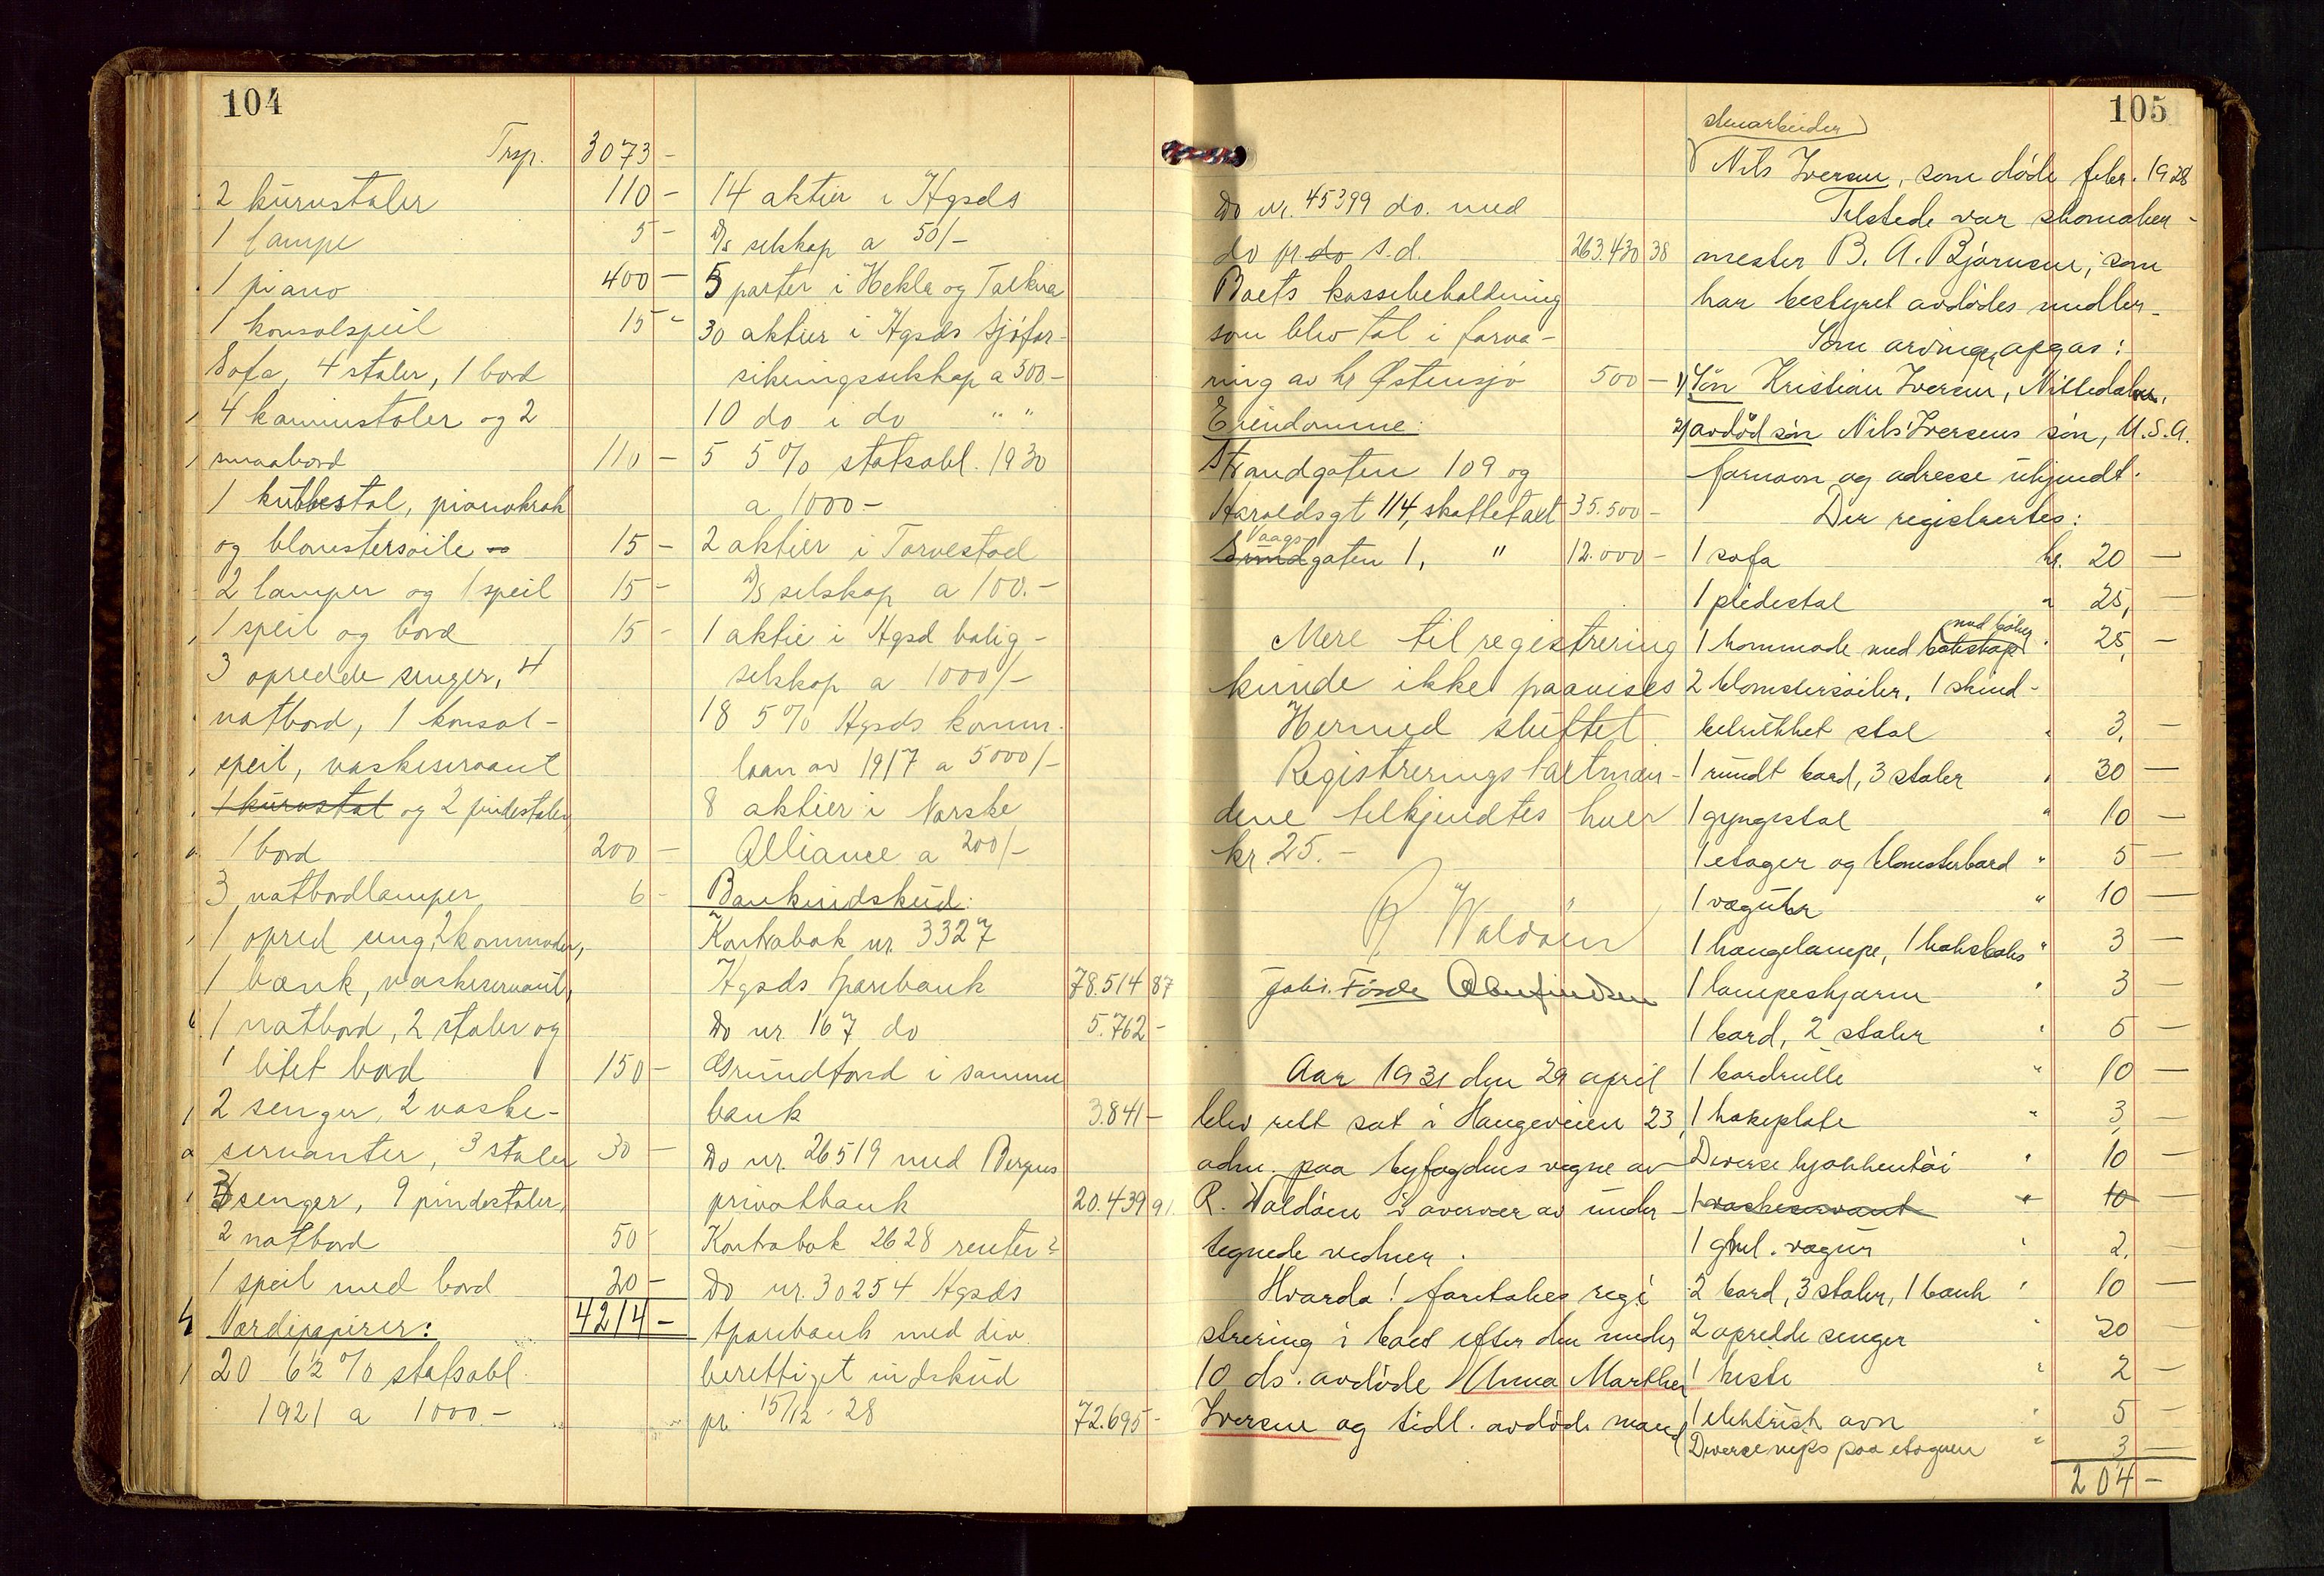 104
Trsp. 3073 -
2 kurvstoler 110 -
1 lampe 5 -
1 piano 400 -
1 konsolspeil 15 -
Sofa, 4 stoler, 1 bord
4 kaminstoler og 2
smaabord 110 -
1 kubbestol, pianokrak
og blomstersøile 15 -
2 lamper og 1 speil 15 -
1 speil og bord 15 -
3 opredde senger, 4
natbord, 1 konsol-
speil, vaskeservant
1 kurvstol og 2 pindestoler
1 bord 200 -
3 natbordlamper 6 -
1 opred seng, 2 kommoder,
1 bænk, vaskeservant,
1 natbord, 2 stoler og
1 litet bord 150 -
2 senger, 2 vaske-
servanter, 3 stoler 30 -
3 senger, 9 pindestoler,
2 natbord 50 -
1 speil med bord 20 -
Værdipapirer: 4214 -
20 6½ % statsobl.
1921 a 1000.-
14 aktier i Hgsds
D/s selskap a 50/-
5 parter i Hekla og Talkna
30 aktier i Hgsds Sjøfor-
sikringsselskap a 500-
10 do i do " "
5 5 % statsobl. 1930
a 1000 -
2 aktier i Torvestad
D/S selskap a 100.-
1 aktie i Hgsd bolig-
selskap a 1000/-
18 5 % Hgsds komm.
laan av 1917 a 5000/-
8 aktier i Norske
Alliance a 200/-
Bankindskud:
Kontrabok nr. 3327
Hgsds Sparebank 78.514 87
Do nr. 167 do 5.762 -
Grundfond i samme
bank 3.841 -
Do nr. 26519 med Bergens
privatbank 20.439 91
Kontrabok 2628 renter?
Do nr. 30254 Hgsds
Sparebank med div.
berettiget indskud
pr. 15/12 - 28 72.695 -
105
Do nr. 45399 do. med
do pr. do s.d. 263.430 38
Boets kassebeholdning
som blev tat i forva-
ring av hr Østensjø 500 -
Eiendomme:
Strandgaten 109 og
Haraldsgt 114, skattetakt 35.500 -
Vaags
Sundgaten 1, " 12.000 -
Mere til registrering
kunde ikke paavises
Hermed sluttet.
Registreringstakstmæn-
dene tilkjendtes hver
kr. 25.-
R Waldøen
Johs. Førde
Aar 1931 den 29 april
blev rett sat i Haugeveien 23,
adm. paa byfogdens vegne av
R. Waldøen i overvær av under-
tegnede vidner.
Hvorda! foretokes regi
strering i boet efter den under
10 ds. avdøde Anna Marthe
Iversen og tidl. avdøde mand
stenarbeider
Nils Iversen, som døde febr. 1928
Tilstede var skomaker-
mester B. A. Bjørnsen, som
har bestyret avdødes midler.
Som arvinger opgas:
1) Søn Kristian Iversen, Nittedalen,
2) avdød søn Nils Iversens søn, U.S.A.
fornavn og adresse ukjendt.
Der registrertes:
1 sofa kr. 20 -
1 piedestal " 25, -
med bøker
1 kommode med bokskap " 25, -
2 blomstersøiler, 1 skind-
betrukket stol " 3, -
1 rundt bord, 3 stoler " 30 -
1 gyngestol " 10 -
1 etager og blomsterbord " 5 -
1 væguhr " 10 -
1 hængelampe, 1 koksboks " 3 -
1 lampeskjærm " 3 -
1 bord, 2 stoler " 5 -
1 bordrulle " 10 -
1 kokeplate " 3, -
Diverse kjøkkentøi " 10 -
1 vaskeservant " 10
1 gml. vægur " 2. -
2 bord, 3 stoler, 1 bænk " 10 -
2 opredde senger " 20 -
1 kiste " 2 -
1 elektrisk ovn " 5 -
Diverse nips paa etageren " 3 -
204 -